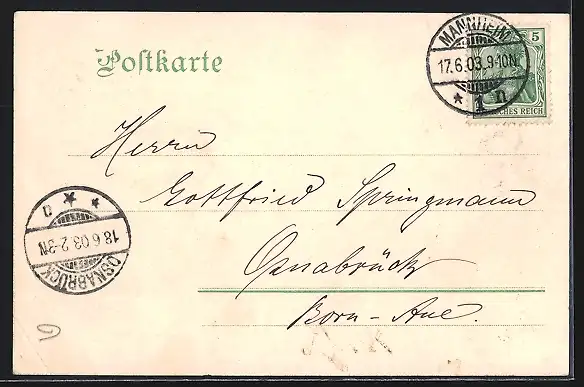 Postkarte
MANNHEIM
17.6.03.9-10N.
* 1 n
5
DEUTSCHES REICH
Herrn
Gottfried Springmann
Osnabrück
Born-Aue.
n * *
18.6.03.2-3N
OSNABRÜCK